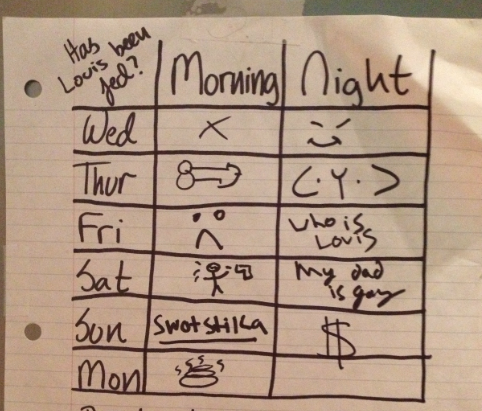 Has
Louis been
fed?
Morning
Night
Wed
X
Thur
(.Y.)
Fri
who is
Louis
Sat
my dad
is gay
Sun
Swotstilka
$
Mon